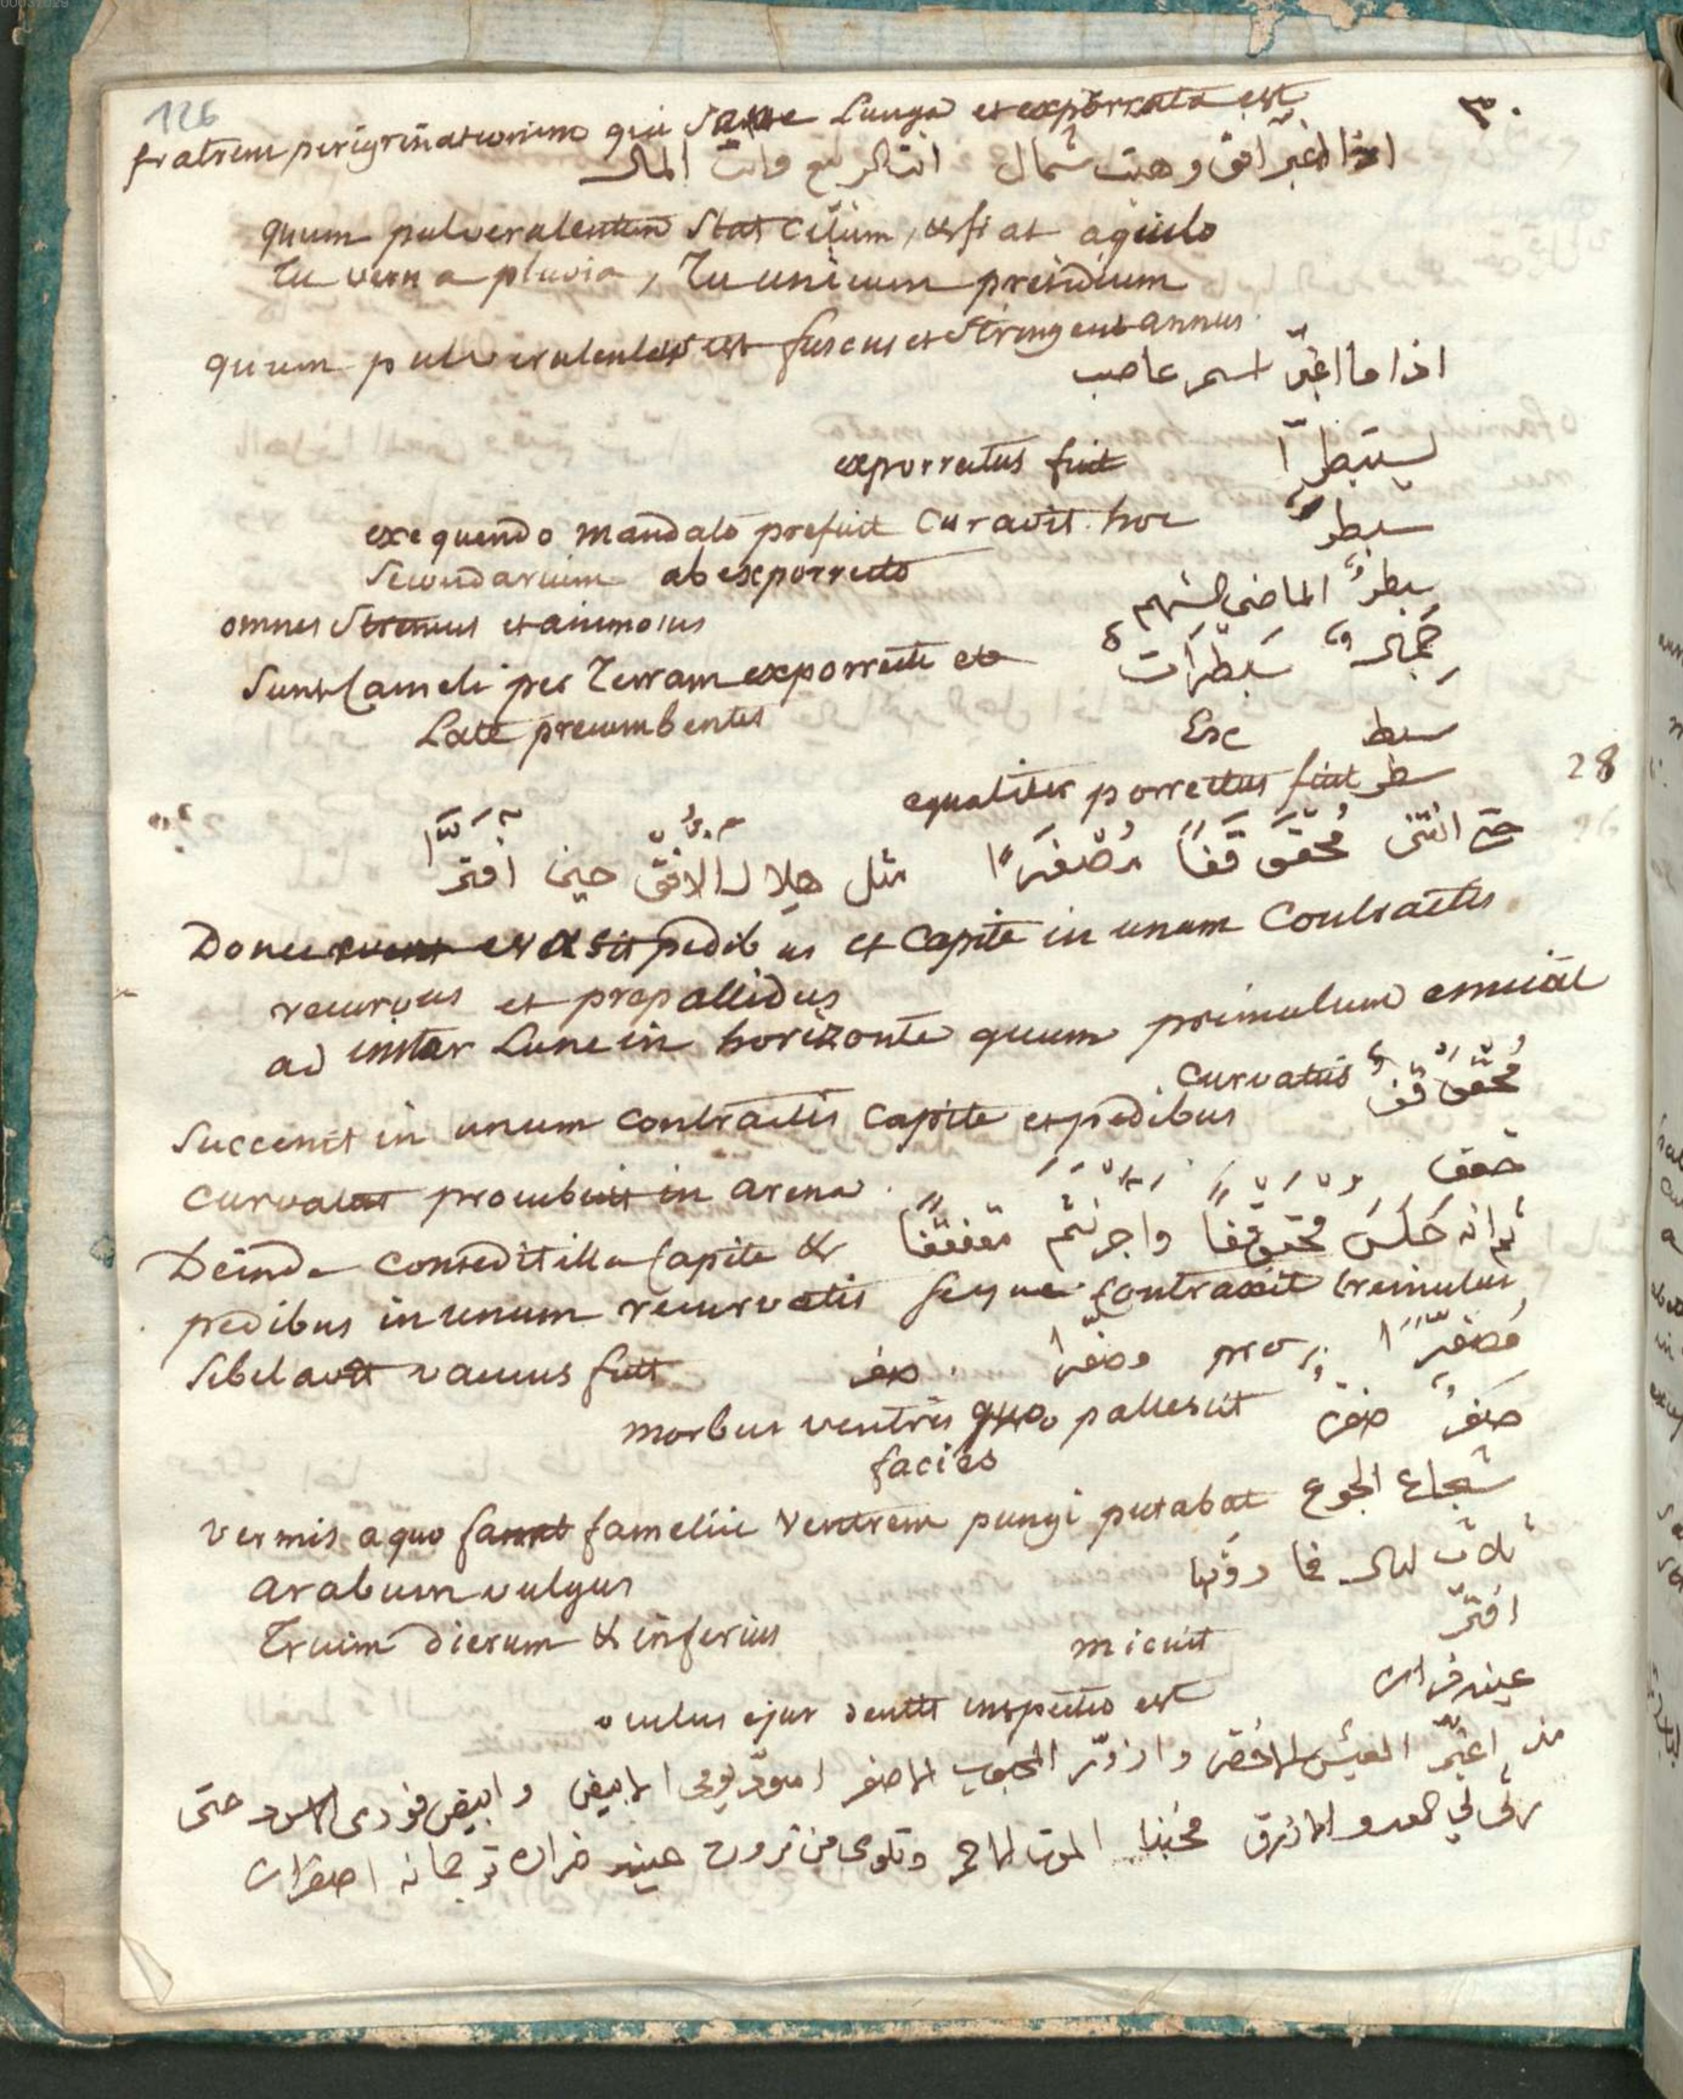 00037029
126
٣٠
fratrem perigrinationum qui sane Lunga et exporrata est
اذا اغبرّ افق وهبت شمال انت الربيع وانت المال
quum pulverulentum stat celum, et fiat aquilo
tu verna pluvia, tu unicum presidium
quum pulverulentus est fuscus et stringens annus
اذا ما اغبرّ اسمر عاصب
exporrectus fuit
سبطر
exequendo mandato prefuit curavit hoc
secundarium ab exporrecto
سبطرٌ الماضي الشهم
omnes strenuus et animosus
جمال سبطرات
sunt Cameli per terram exporrecti et
Late procumbentes
سبط Esc
equaliter porrectus fuit سطر
28
حتى انثنى محقوقفًا مصفرًّا مثل هلال الافق حين افترّا
Donec evasit pedibus et capite in unum contractis
recurvus et prepallidus
ad instar Lune in horizonte quum primulum emicat
curvatus محقوقف
succenit in unum contractis capite et pedibus
حقف
curvatus procubuit in arena
ثم انه جلس محقوقفًا واجرنثم مقفقفًا
Deinde consedit illa capite &
pedibus in unum recurvatis seque contraxit tremulus
مصفرًّا pro مصفرا . صفر
sibilavit vacuus fuit
صفر صفر
morbus ventris quo pallescit
facies
شجاع الجوع
vermis a quo famelici ventrem pungi putabat
arabum vulgus
ثلاث ليال فما دونها
trium dierum & inferius
افترّ
micuit
عينه فراره
oculus ejus dentis inspectio est
مذ اغبرّ العيش الاخضر وازورّ المحبوب الاصفر اسودّ يومي الابيض وابيض فودي الاسود حتى
رثى لي العدو الازرق فحبذا الموت الاحمر وتلوي من ترون عينه فراره ترجمانه اصفراره